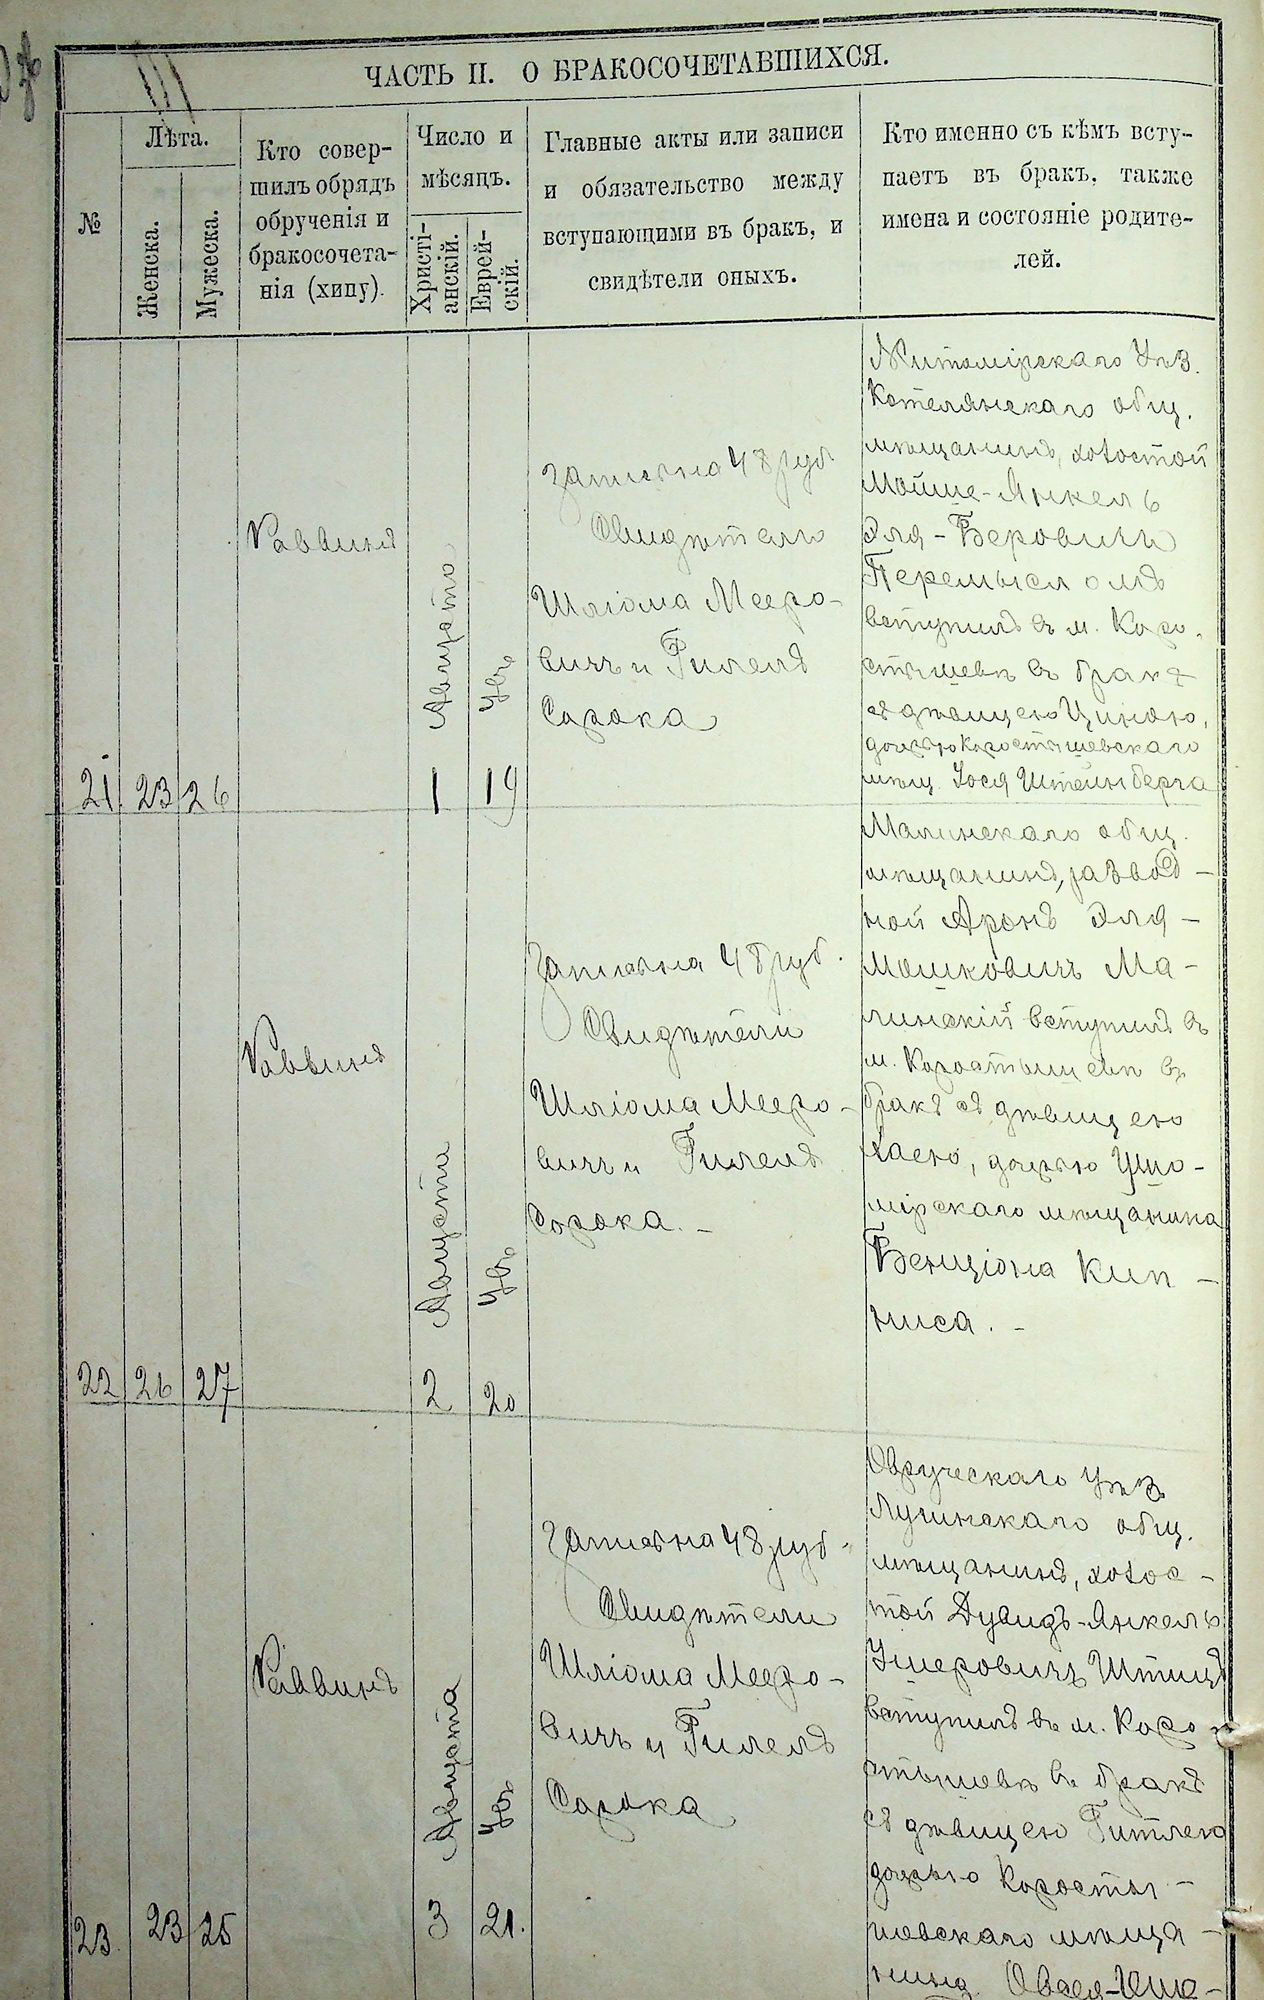 ЧАСТЬ II. О БРАКОСОЧЕТАВШИХСЯ.
№
Лѣта.
Женска.
Мужеска.
Кто совер-
шилъ обрядъ
обрученія и
бракосочета-
нія (хипу).
Число и
мѣсяцъ.
Христі-
анскій.
Еврей-
скій.
Главные акты или записи
и обязательство между
вступающими въ бракъ, и
свидѣтели оныхъ.
Кто именно съ кѣмъ всту-
паетъ въ бракъ, также
имена и состояніе родите-
лей.
21
23
26
Раввинъ
Августа
1
19
Записъ на 48 руб
Свидѣтели
Шліома Мееро-
вичъ и Гилель
Сорока
Житомірскаго Уѣз.
Котелянскаго общ.
мѣщанинъ, холостой
Мойше-Янкель
Эля-Беровичъ
Перемысломъ
вступилъ въ м. Коро-
стышевѣ въ бракъ
съ дѣвицею Циною,
дочерью Коростышевскаго
мѣщ. Іося Штейнберга
22
26
27
Раввинъ
Августа
2
20
Записъ на 48 руб.
Свидѣтели
Шліома Мееро-
вичъ и Гилель
Сорока. -
Малинскаго общ.
мѣщанинъ, развод-
ной Аронъ Эля-
Мошковичъ Ма-
линскій вступилъ въ
м. Коростышевѣ въ
бракъ съ дѣвицею
Хаею, дочерью Ушо-
мірскаго мѣщанина
Бенціона Кип-
ниса. -
23
23
25
Раввинъ
Августа
3
21.
Записъ на 48 руб.
Свидѣтели
Шліома Мееро-
вичъ и Гилель
Сорока
Овручскаго Уѣз.
Лугинскаго общ.
мѣщанинъ, холос-
той Дувидъ-Янкель
Ушеровичъ Штиц
вступилъ въ м. Коро-
стышевѣ въ бракъ
съ дѣвицею Гитлею
дочерью Коросты-
шевскаго мѣща-
нина